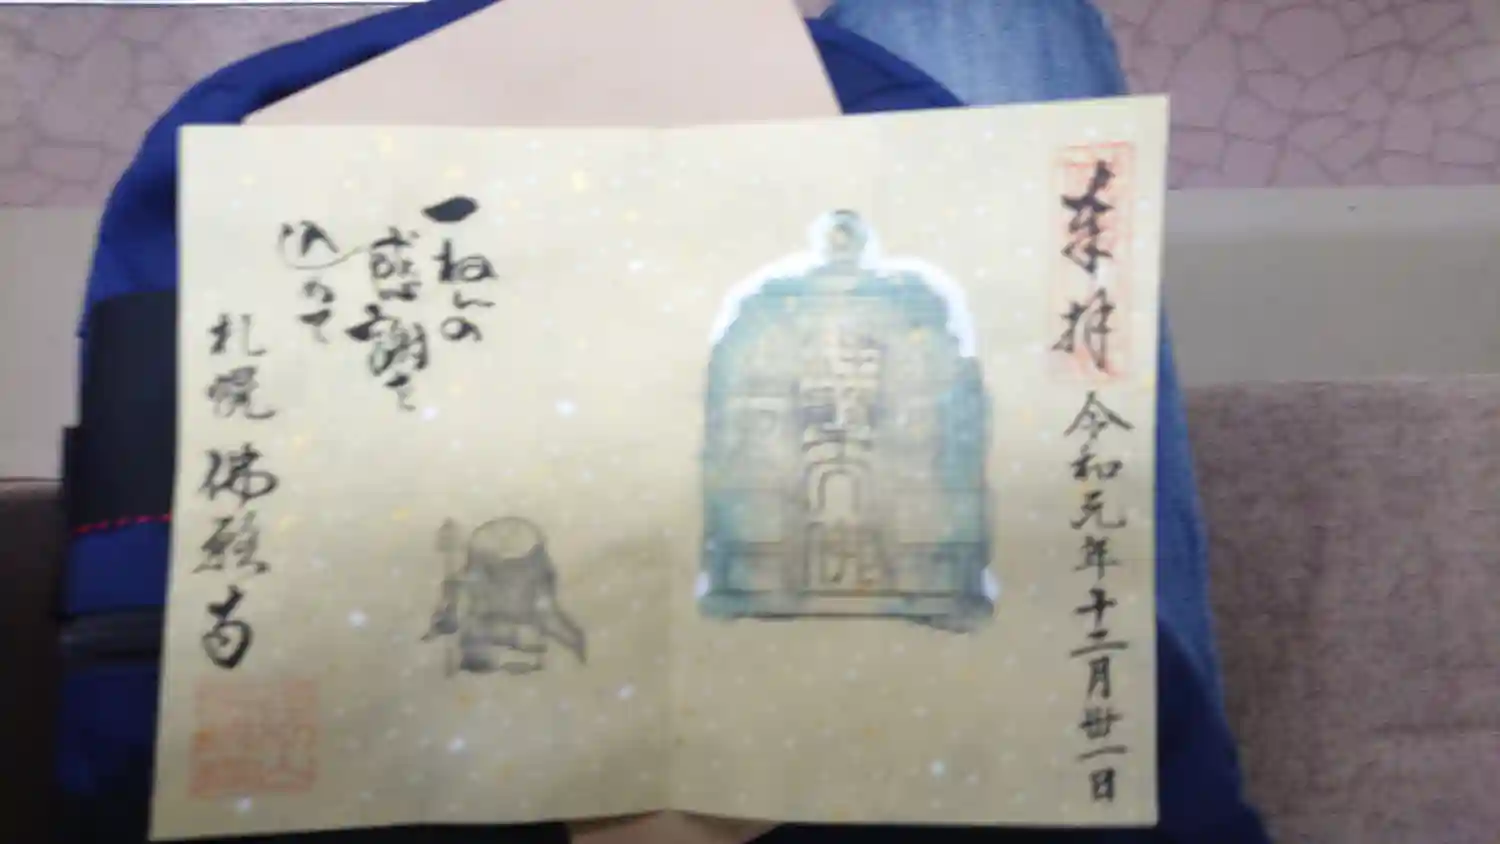 奉拝
令和元年十二月卅一日
一ねんの
感謝を
込めて
札幌 佛願寺